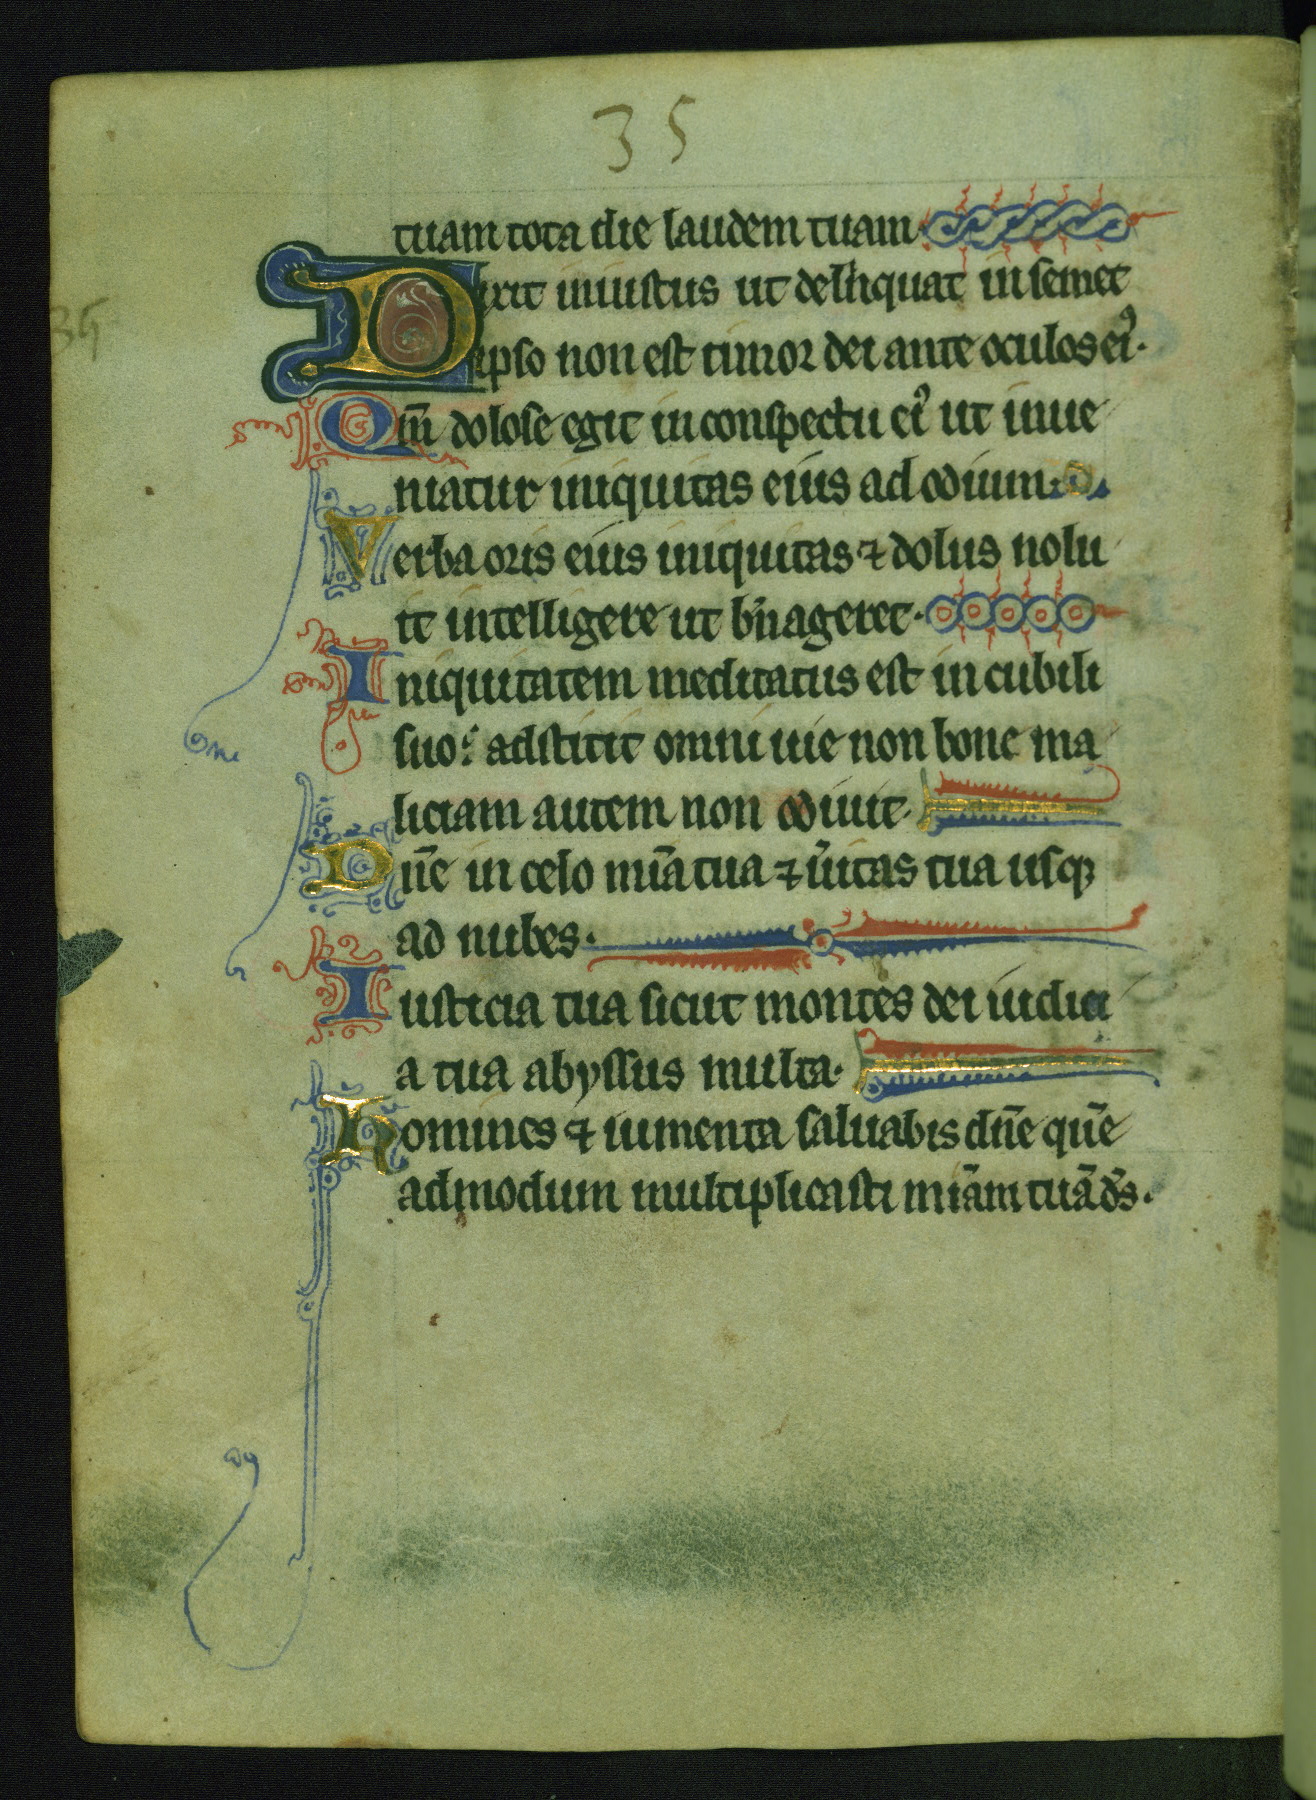 35
tuam tota die laudem tuam
Dixit iniustus ut delinquat in semet
35
ipso non est timor dei ante oculos eiꝰ.
Qm̄ dolose egit in conspectu eiꝰ ut inue
niatur iniquitas eius ad odium.
Verba oris eius iniquitas ⁊ dolus nolu
it intelligere ut bn̄ ageret.
Iniquitatem meditatus est in cubili
suo: adstitit omni uie non bone ma
liciam autem non odiuit.
Dn̄e in celo mīa tua ⁊ ūitas tua usqꝫ
ad nubes.
Iusticia tua sicut montes dei iudici
a tua abyssus multa.
Homines ⁊ iumenta saluabis dn̄e quē
admodum multiplicasti mīam tuā ds̄.